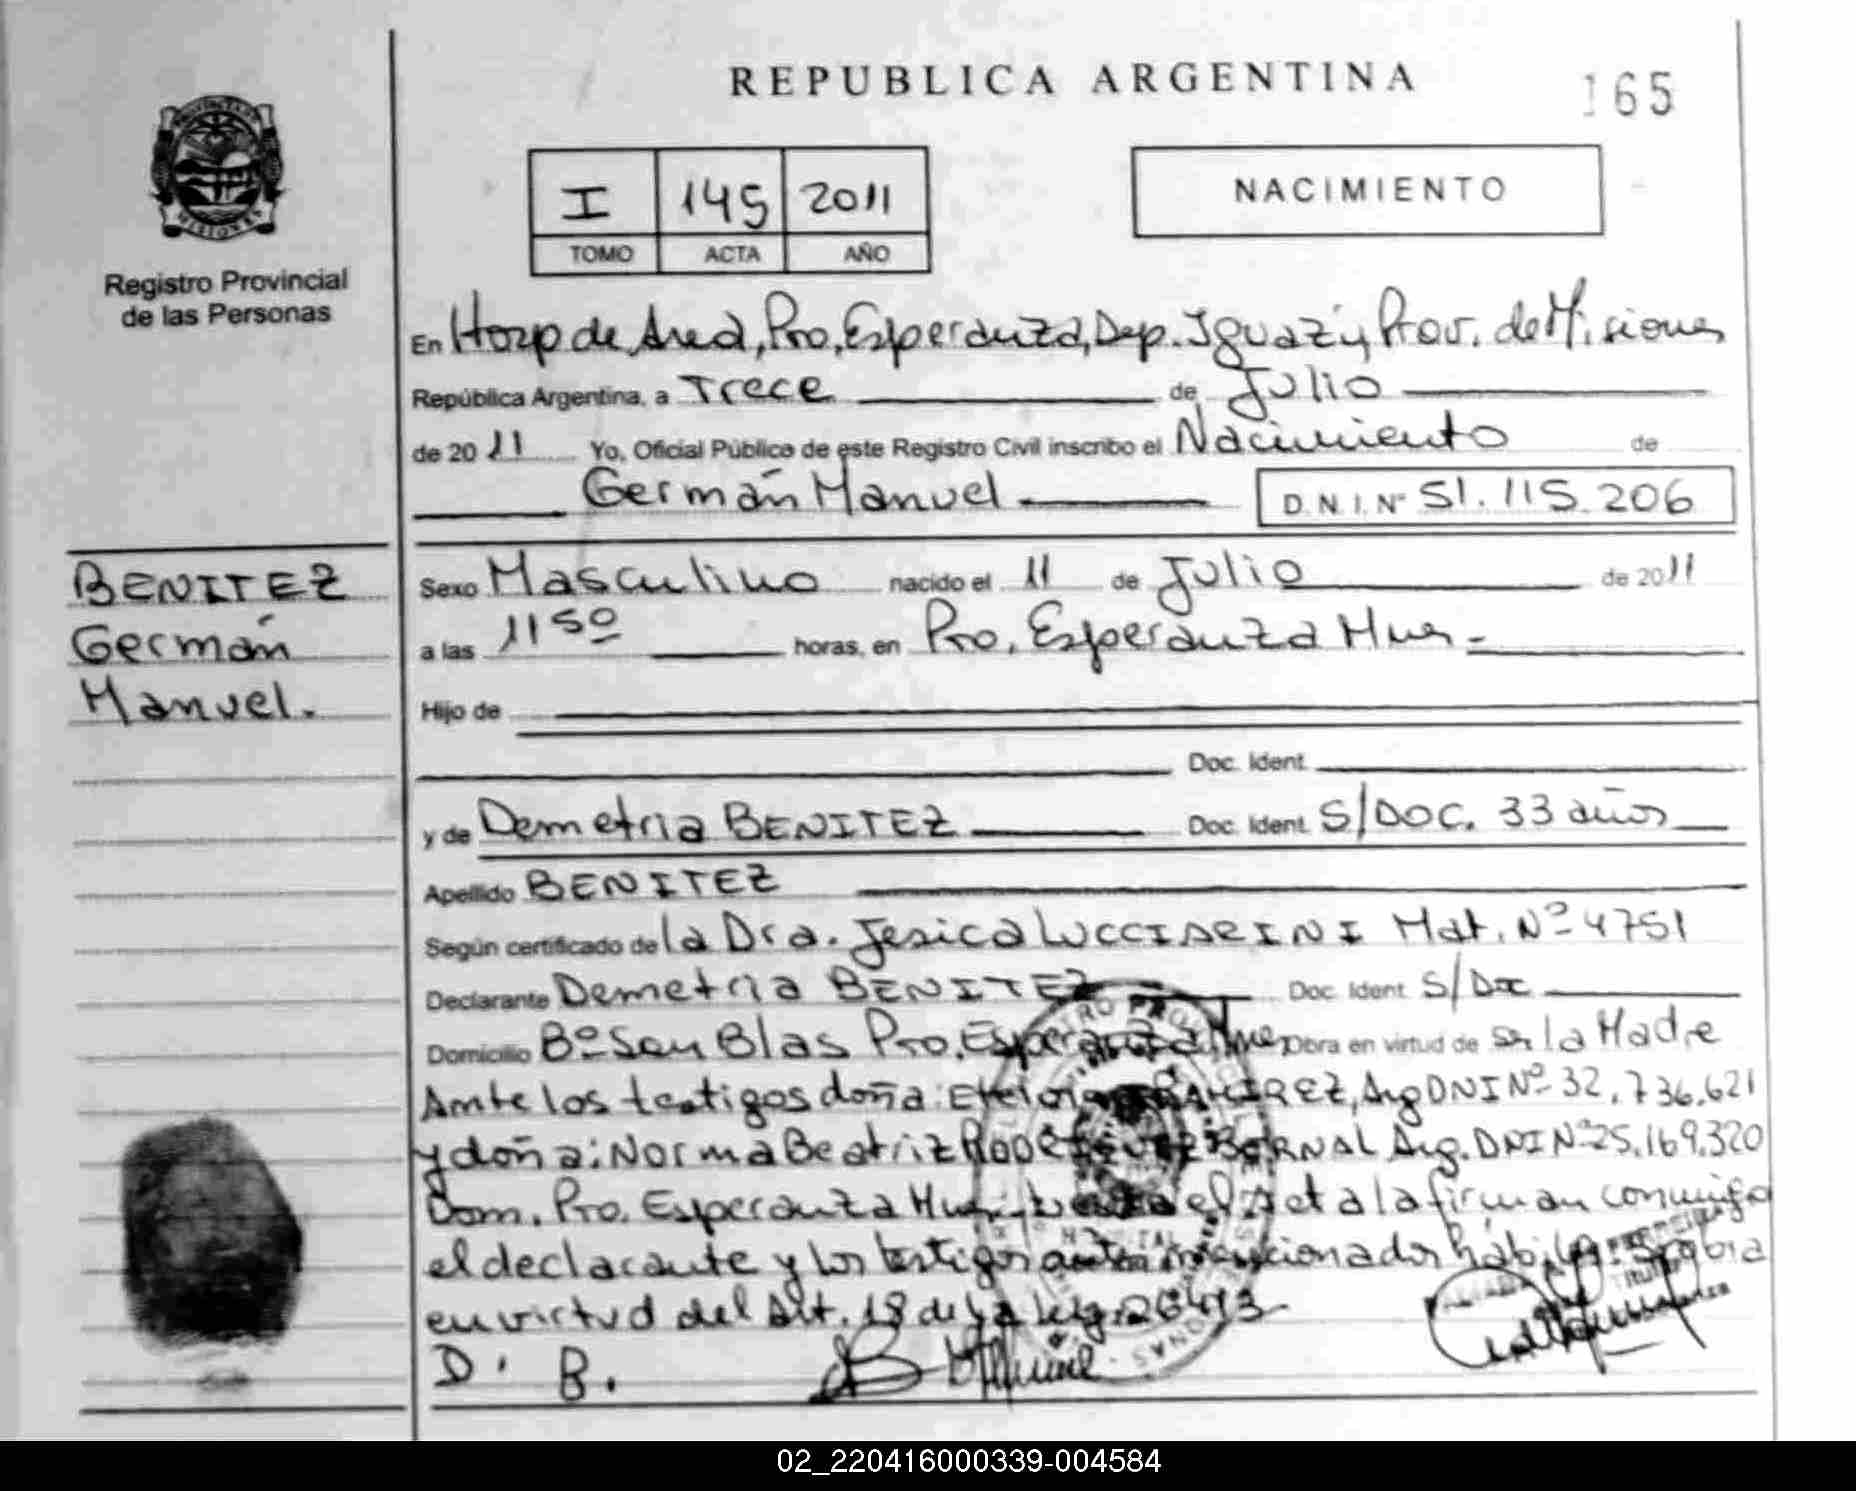 REPUBLICA ARGENTINA
165
MISIONES
Registro Provincial
de las Personas
I 145 2011
TOMO ACTA AÑO
NACIMIENTO
En Hosp de Area, Pto, Esperanza, Dep. Iguazú Prov. de Misiones
República Argentina, a Trece de Julio
de 20 11 Yo, Oficial Público de este Registro Civil inscribo el Nacimiento de
Germán Manuel D.N.I. Nº 51.115.206
BENITEZ
Germán
Manuel.
Sexo Masculino nacido el 11 de Julio de 2011
a las 11 50 horas, en Pto, Esperanza Mnes
Hijo de
Doc. Ident.
y de Demetria BENITEZ Doc. Ident. S/DOC. 33 años
Apellido BENITEZ
Según certificado de la Dra. Jesica LUCCIARINI Mat. Nº 4751
Declarante Demetria BENITEZ Doc. Ident. S/Doc
Domicilio Bº San Blas Pto, Esperanza Mnes Obra en virtud de ser la Madre
Ante los testigos doña: RAMIREZ, Arg DNI Nº 32.736.621
y doña: Norma Beatriz BERNAL Arg. DNI Nº 25.169.320
Dom. Pto, Esperanza el acta la firman conmigo
el declarante y los testigos antes mencionados
en virtud del Art. 18 de la ley 26413
D. B.
02_220416000339-004584